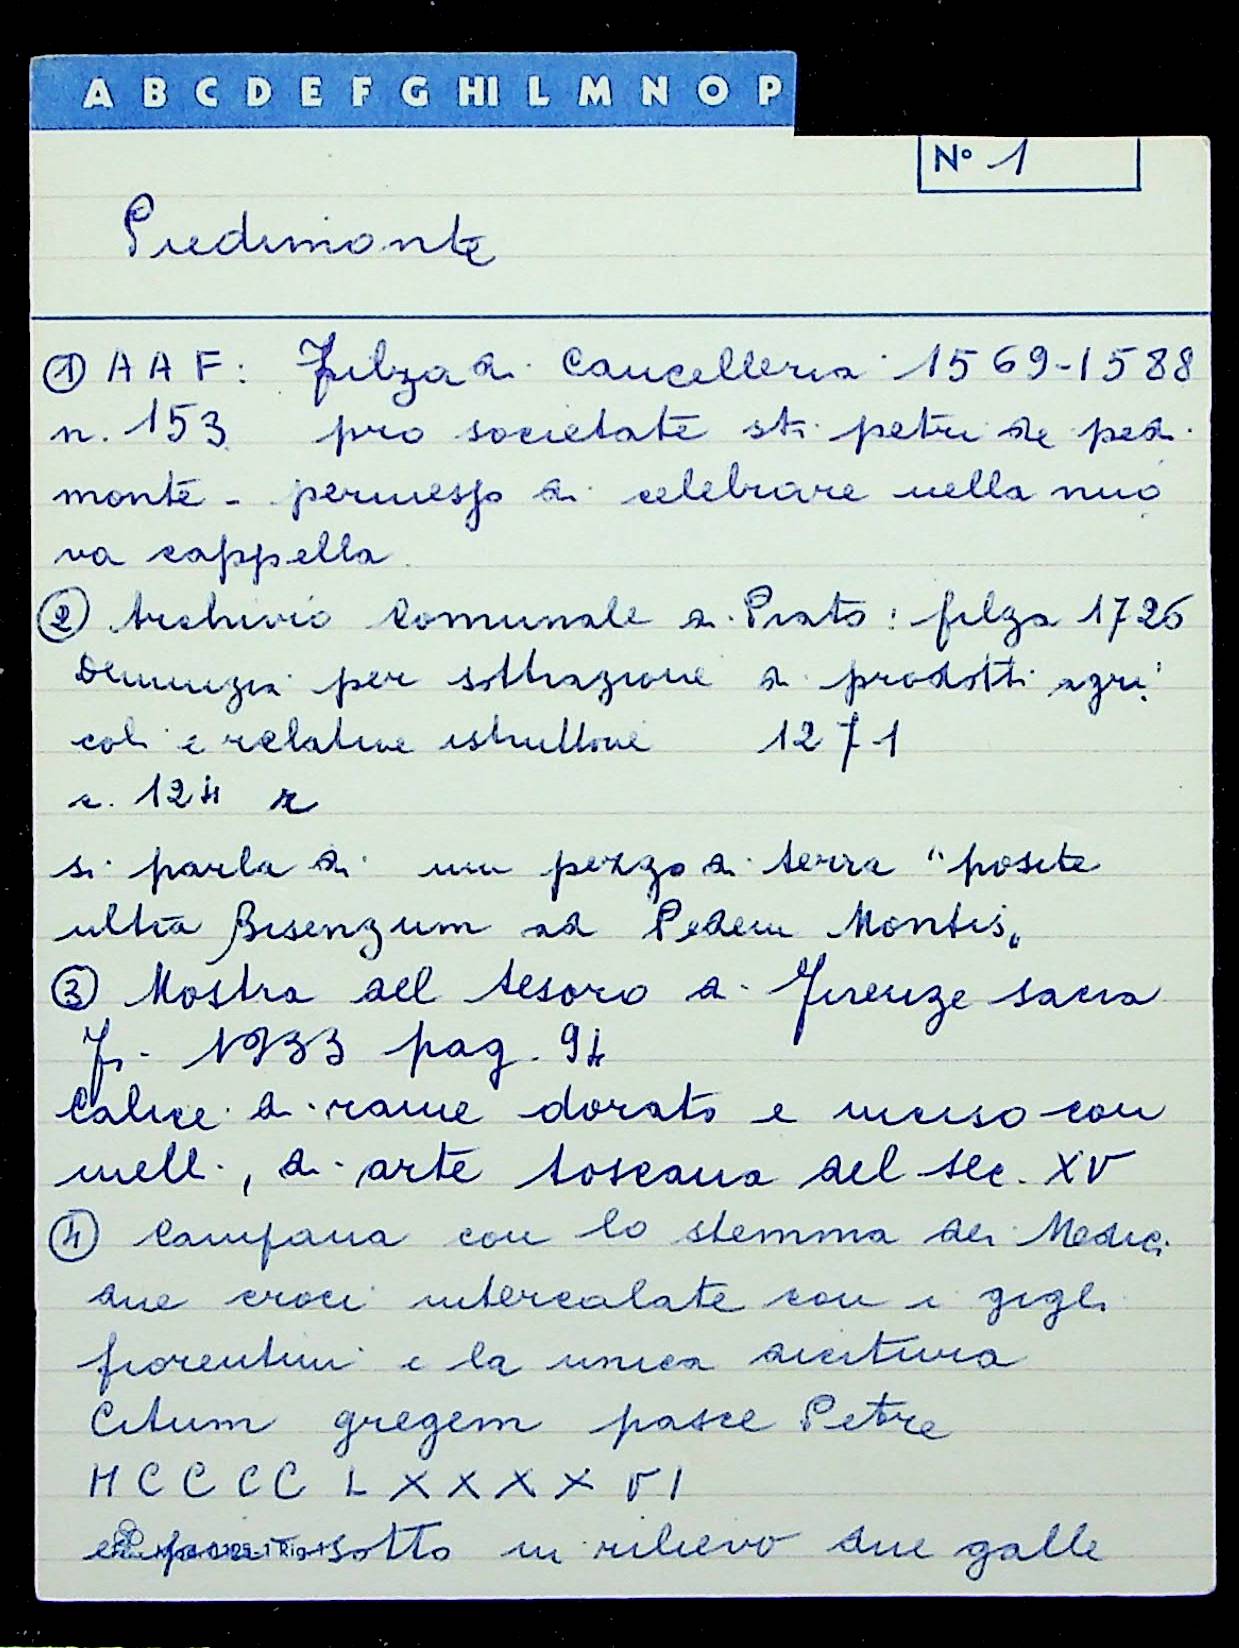 A B C D E F G HI L M N O P
N° 1
Piedimonte
① A A F: Filza di Cancelleria 1569-1588
n. 153 pro societate sti petri de pedi
monte - permesso di celebrare nella nuo
va cappella
② Archivio Comunale di Prato: filza 1726
Denunzia per sottrazione di prodotti agri
coli e relative istruttorie 1271
c. 124 r
si parla di un pezzo di terra "posite
ultra Bisenzum ad Pedem Montis"
③ Mostra del tesoro di Firenze sacra
Fi. 1933 pag. 94
Calice di rame dorato e inciso con
niell., di arte toscana del sec. XV
④ Campana con lo stemma dei Medici
due croci intercalate con i gigli
fiorentini e la unica dicitura
Citum gregem pasce Petre
MCCCCLXXXXVI
sotto in rilievo due galle